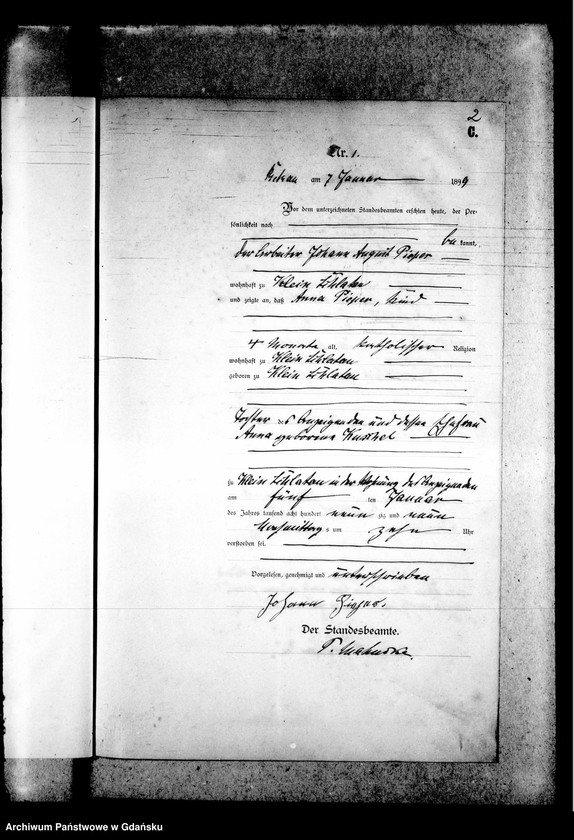 2
C.
Nr. 1.
am 7 Januar 1899
Vor dem unterzeichneten Standesbeamten erschien heute, der Per-
sönlichkeit nach
be kannt,
der Arbeiter Johann August Pieper
wohnhaft zu Klein
und zeigte an, daß Anna Pieper, Kind
4 Monate alt, katholischer Religion
wohnhaft zu Klein
geboren zu Klein
Tochter des Anzeigenden und dessen Ehefrau
Anna geborene Kuschel
zu Klein in der Wohnung des Anzeigenden
am fünf ten Januar
des Jahres tausend acht hundert neun zig und neun
Nachmittag s um zehn Uhr
verstorben sei.
Vorgelesen, genehmigt und unterschrieben
Johann
Der Standesbeamte.
Archiwum Państwowe w Gdańsku